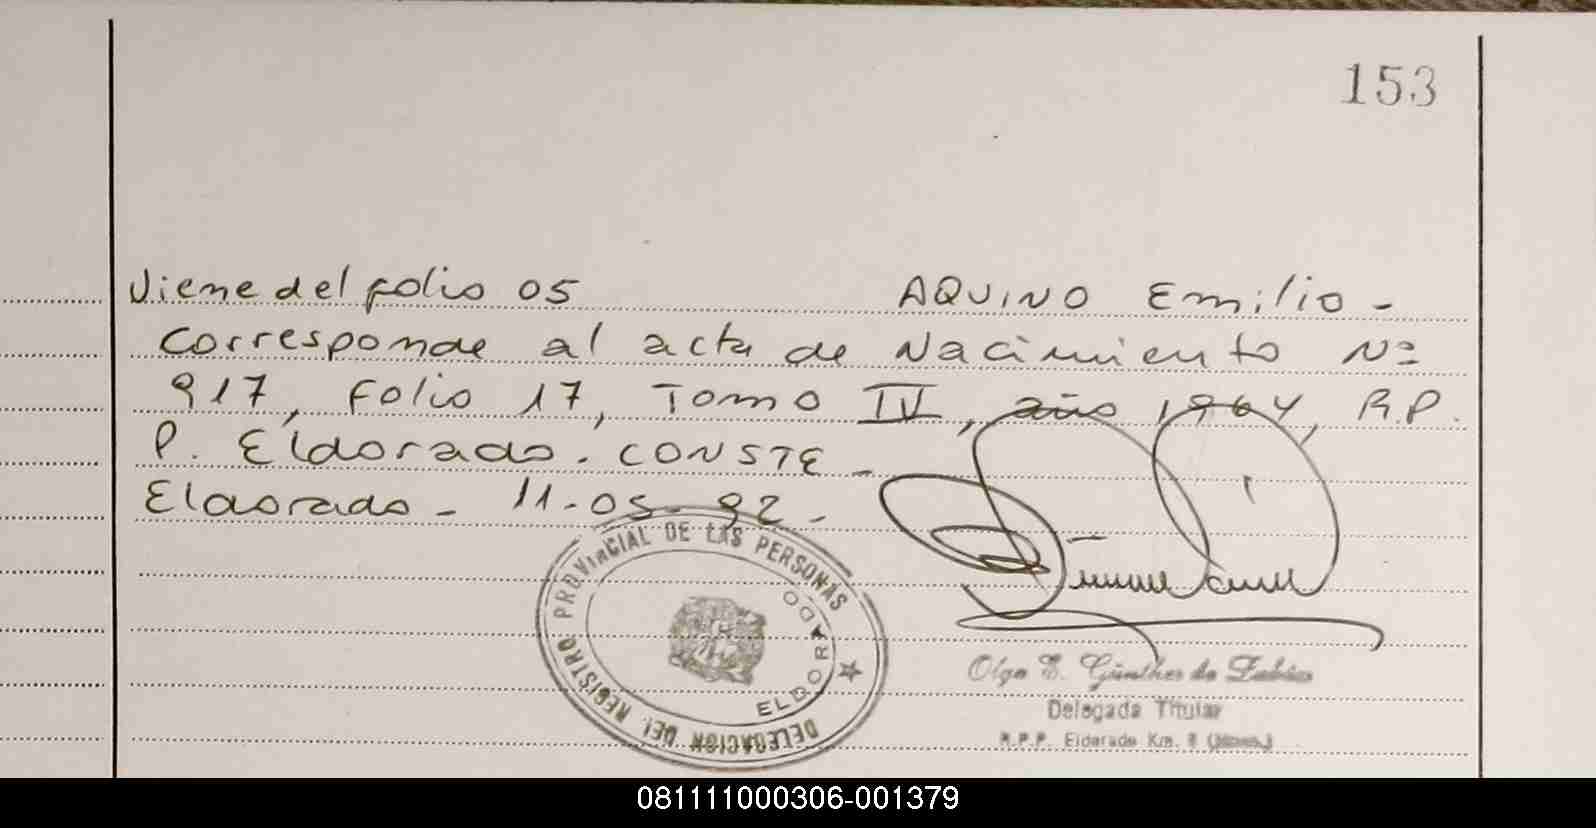 153
Viene del folio 05 AQUINO Emilio -
Corresponde al acta de Nacimiento Nº
917, Folio 17, Tomo IV, año 1964, R.P.
P. Eldorado. CONSTE -
Eldorado - 11-05-92 -
DELEGACION DEL REGISTRO PROVINCIAL DE LAS PERSONAS
ELDORADO
Olga E. Günther de
Delegada Titular
R.P.P. Eldorado Km. 8
081111000306-001379